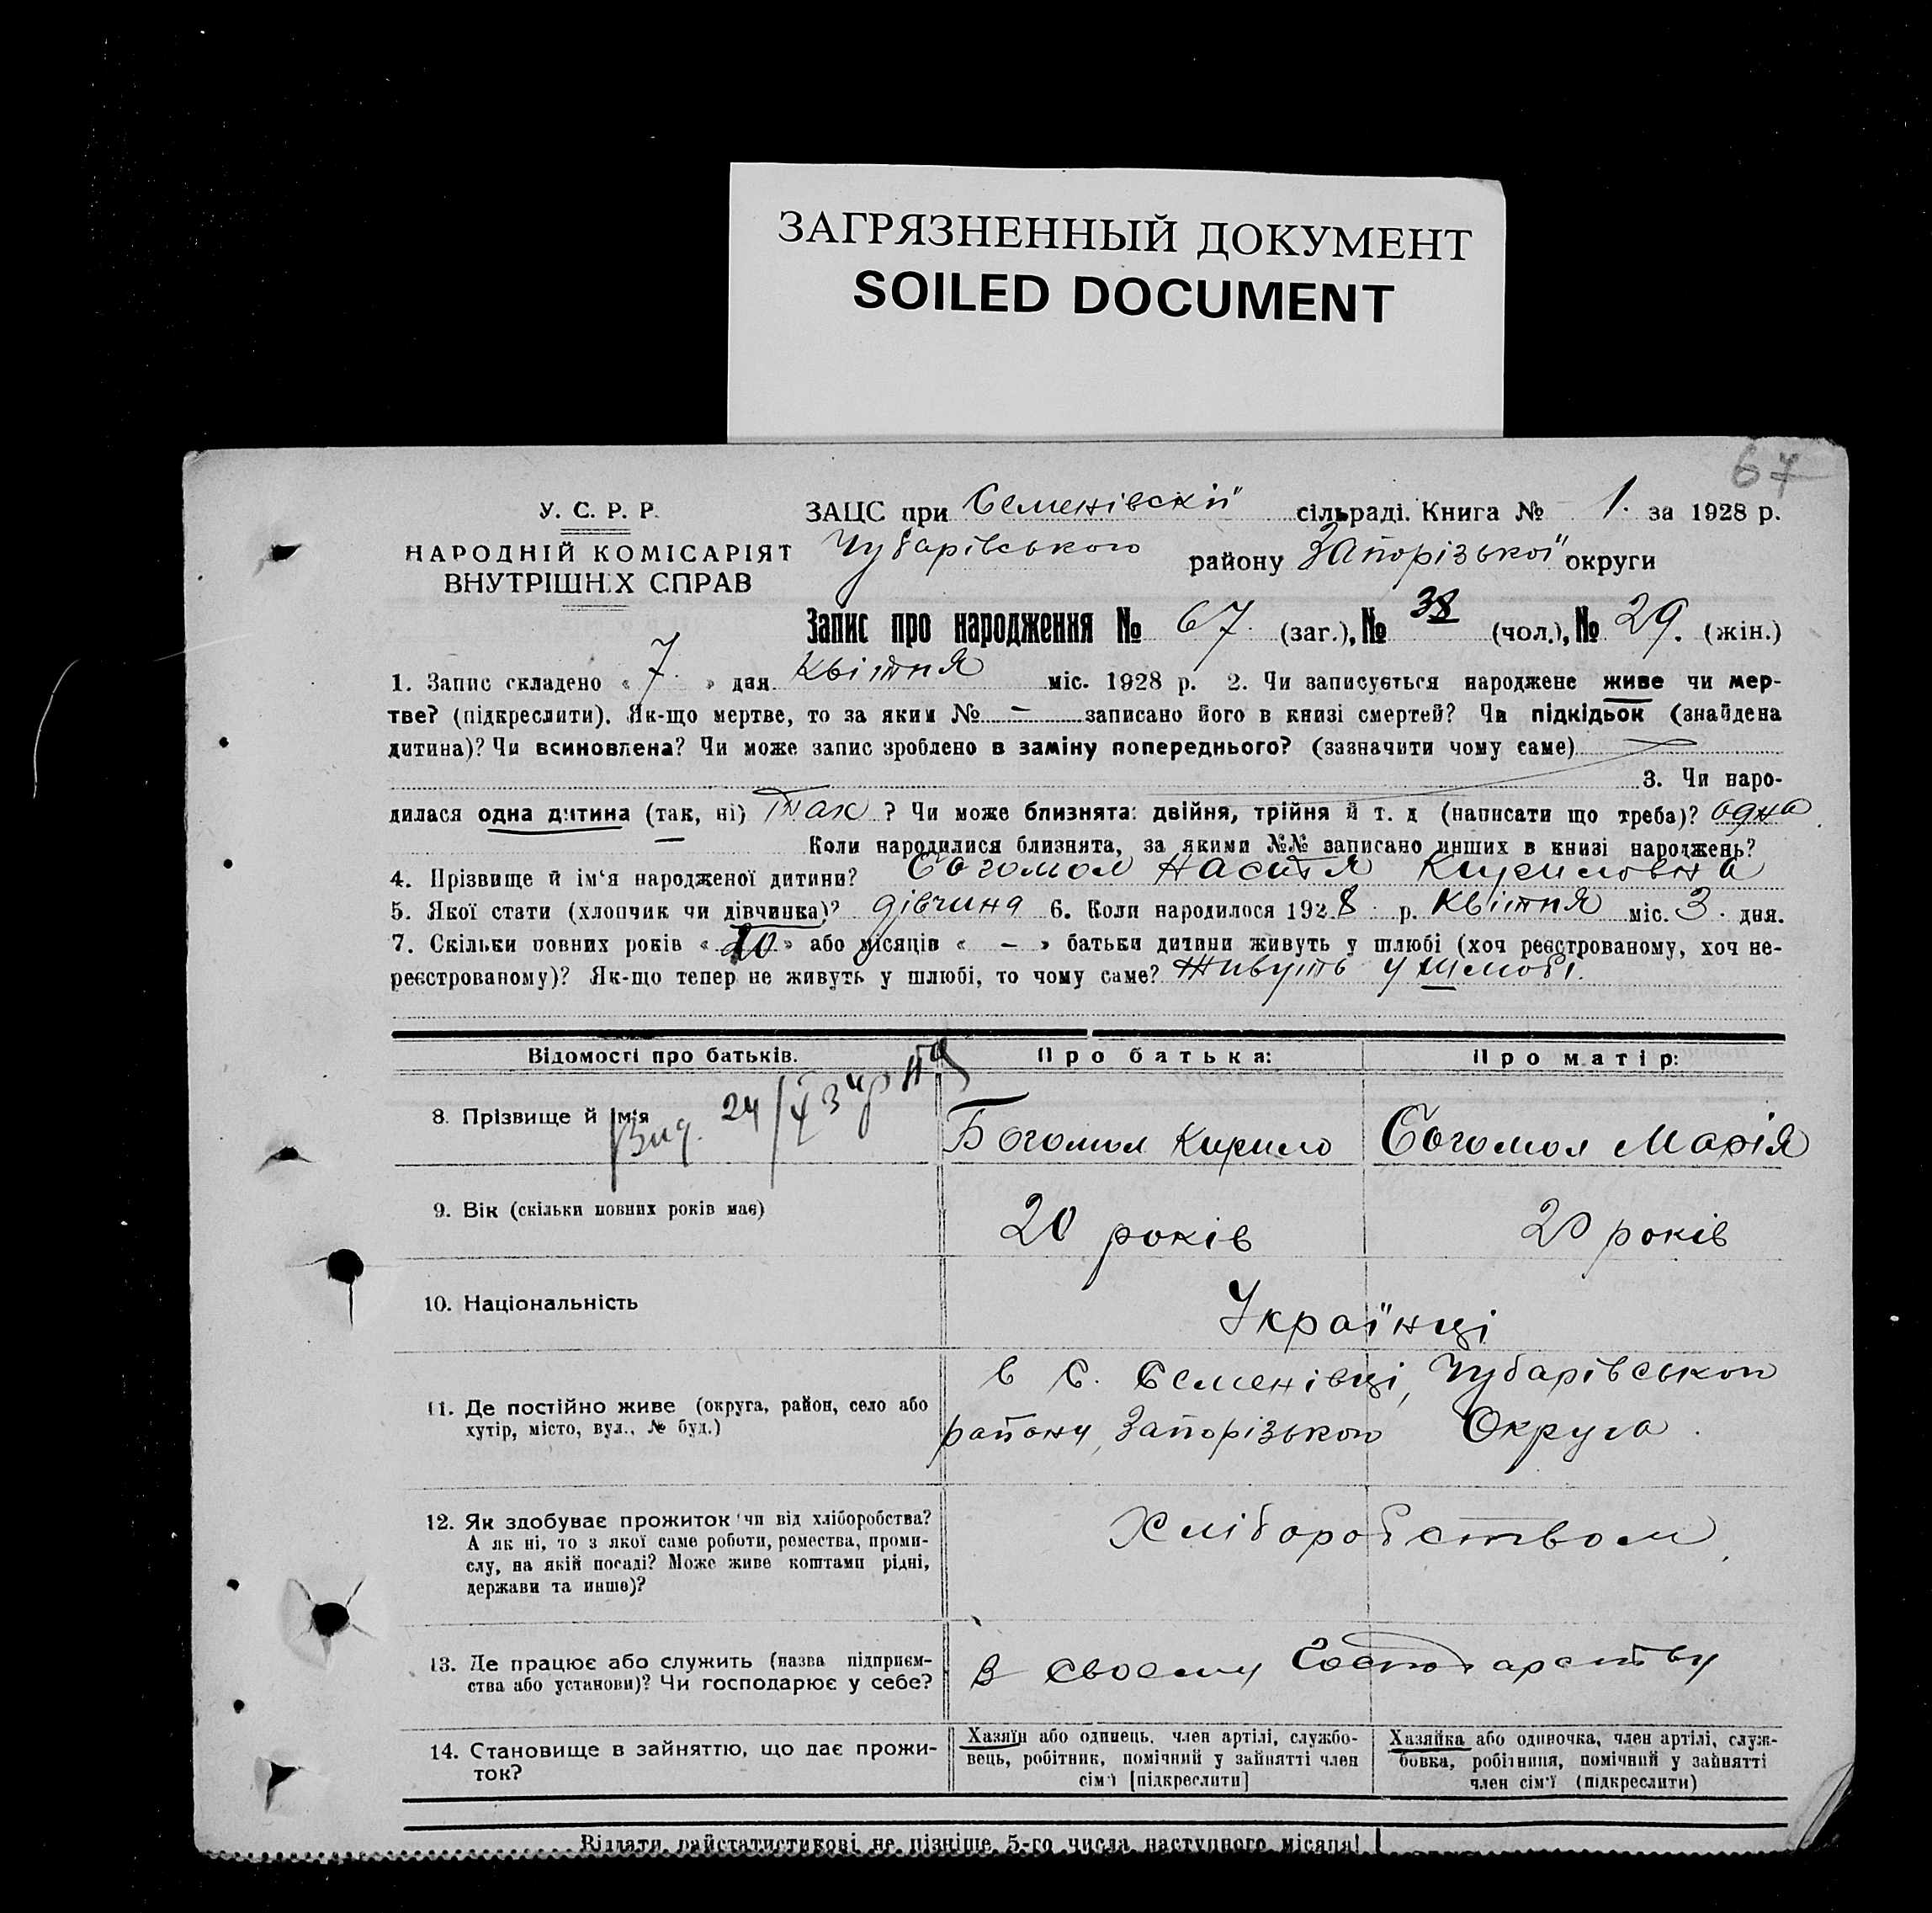 ЗАГРЯЗНЕННЫЙ ДОКУМЕНТ
SOILED DOCUMENT
67
У. С. Р. Р.
НАРОДНІЙ КОМІСАРІЯТ
ВНУТРІШНІХ СПРАВ
ЗАЦС при Семенівскій сільраді. Книга № 1. за 1928 р.
Чубарівського району Запорізької округи
Запис про народження № 67. (заг.), № 38 (чол.), № 29. (жін.)
1. Запис складено « 7. » дня Квітня міс. 1928 р. 2. Чи записується народжене живе чи мер-
тве? (підкреслити). Як-що мертве, то за яким № — записано його в книзі смертей? Чи підкідьок (знайдена
дитина)? Чи всиновлена? Чи може запис зроблено в заміну попереднього? (зазначити чому саме)
3. Чи наро-
дилася одна дитина (так, ні) Так ? Чи може близнята: двійня, трійня й т. д (написати що треба)? одна
Коли народилися близнята, за якими №№ записано инших в книзі народжень?
4. Прізвище й ім'я народженої дитини? Богомол Настя Кириловна
5. Якої стати (хлопчик чи дівчинка)? дівчина 6. Коли народилося 1928 р. Квітня міс. 3. дня.
7. Скільки повних років « » або місяців « – » батьки дитини живуть у шлюбі (хоч реєстрованому, хоч не-
реєстрованому)? Як-що тепер не живуть у шлюбі, то чому саме? Живуть у шлюбі.
Відомості про батьків.
Про батька:
Про матір:
8. Прізвище й ім'я
Вид. 24/
Богомол Кирило
Богомол Марія
9. Вік (скільки повних років має)
20 років
20 років
10. Національність
Українці
11. Де постійно живе (округа, район, село або
хутір, місто, вул., № буд.)
в с. Семенівці, Чубарівською
району, Запорізькою Округа.
12. Як здобуває прожиток чи від хліборобства?
А як ні, то з якої саме роботи, ремества, проми-
слу, на якій посаді? Може живе коштами рідні,
держави та инше)?
Хліборобством,
13. Де працює або служить (назва підприєм-
ства або установи)? Чи господарює у себе?
В своему Господарству
14. Становище в зайняттю, що дає прожи-
ток?
Хазяїн або одинець, член артілі, службо-
вець, робітник, помічний у зайнятті член
сім'ї [підкреслити]
Хазяйка або одиночка, член артілі, служ-
бовка, робітниця, помічний у зайнятті
член сім'ї (підкреслити)
Віддати райстатистикові не пізніше 5-го числа наступного місяця!